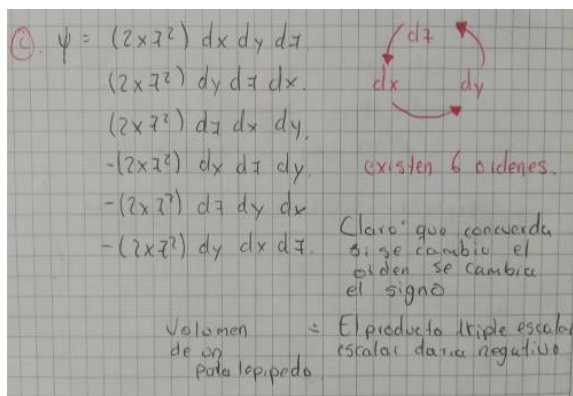 c). ψ = (2xz²) dx dy dz
(2xz²) dy dz dx.
(2xz²) dz dx dy.
-(2xz²) dx dz dy.
-(2xz²) dz dy dx
-(2xz²) dy dx dz.
dz
dx dy
existen 6 ordenes.
Claro que concuerda
si se cambia el
orden se cambia
el signo
Volumen = El producto triple escalar
de un escalar daria negativo
paralepipedo.